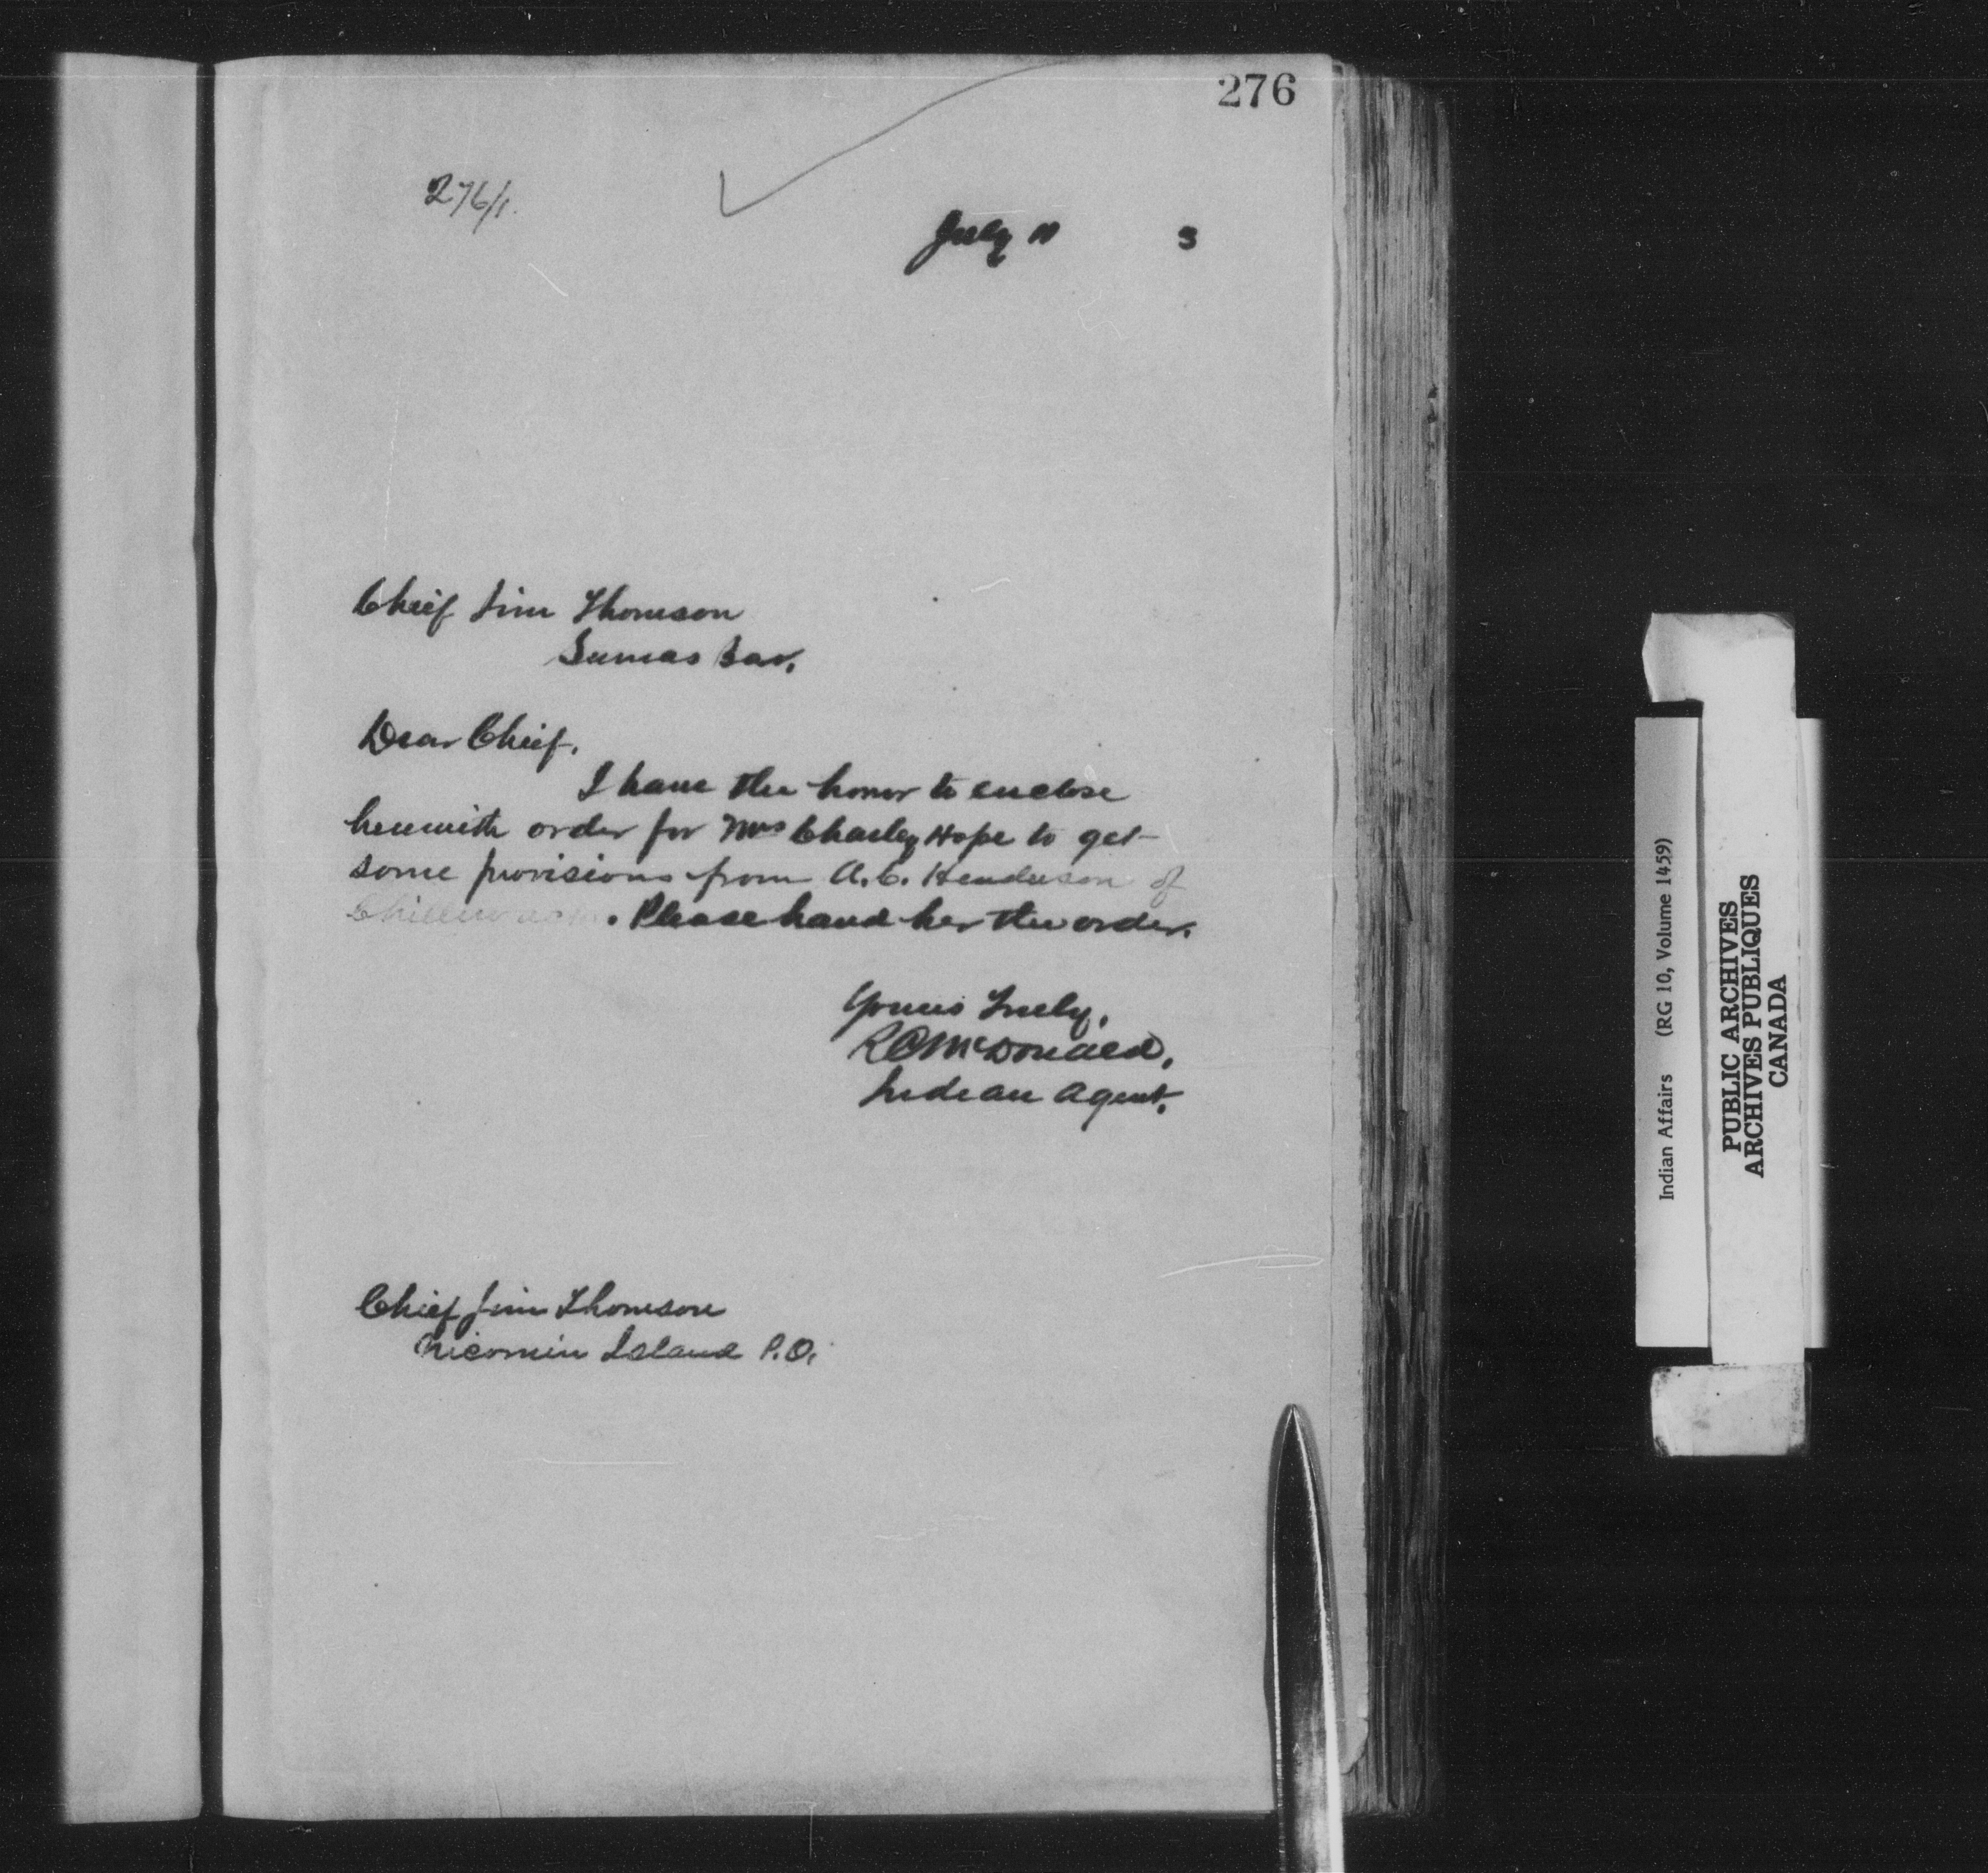 276
276/1.
July 11 3
Chief Jim Thomson
Sumas Bar.
Dear Chief,
I have the honor to enclose
herewith order for Mrs Charley Hope to get
some provisions from A.C. Henderson of
Chilliwack. Please hand her the order.
Yours Truly,
RCMcDonald,
Indian Agent.
Chief Jim Thomson
Nicomin Island P.O.
Indian Affairs (RG 10, Volume 1459)
PUBLIC ARCHIVES
ARCHIVES PUBLIQUES
CANADA